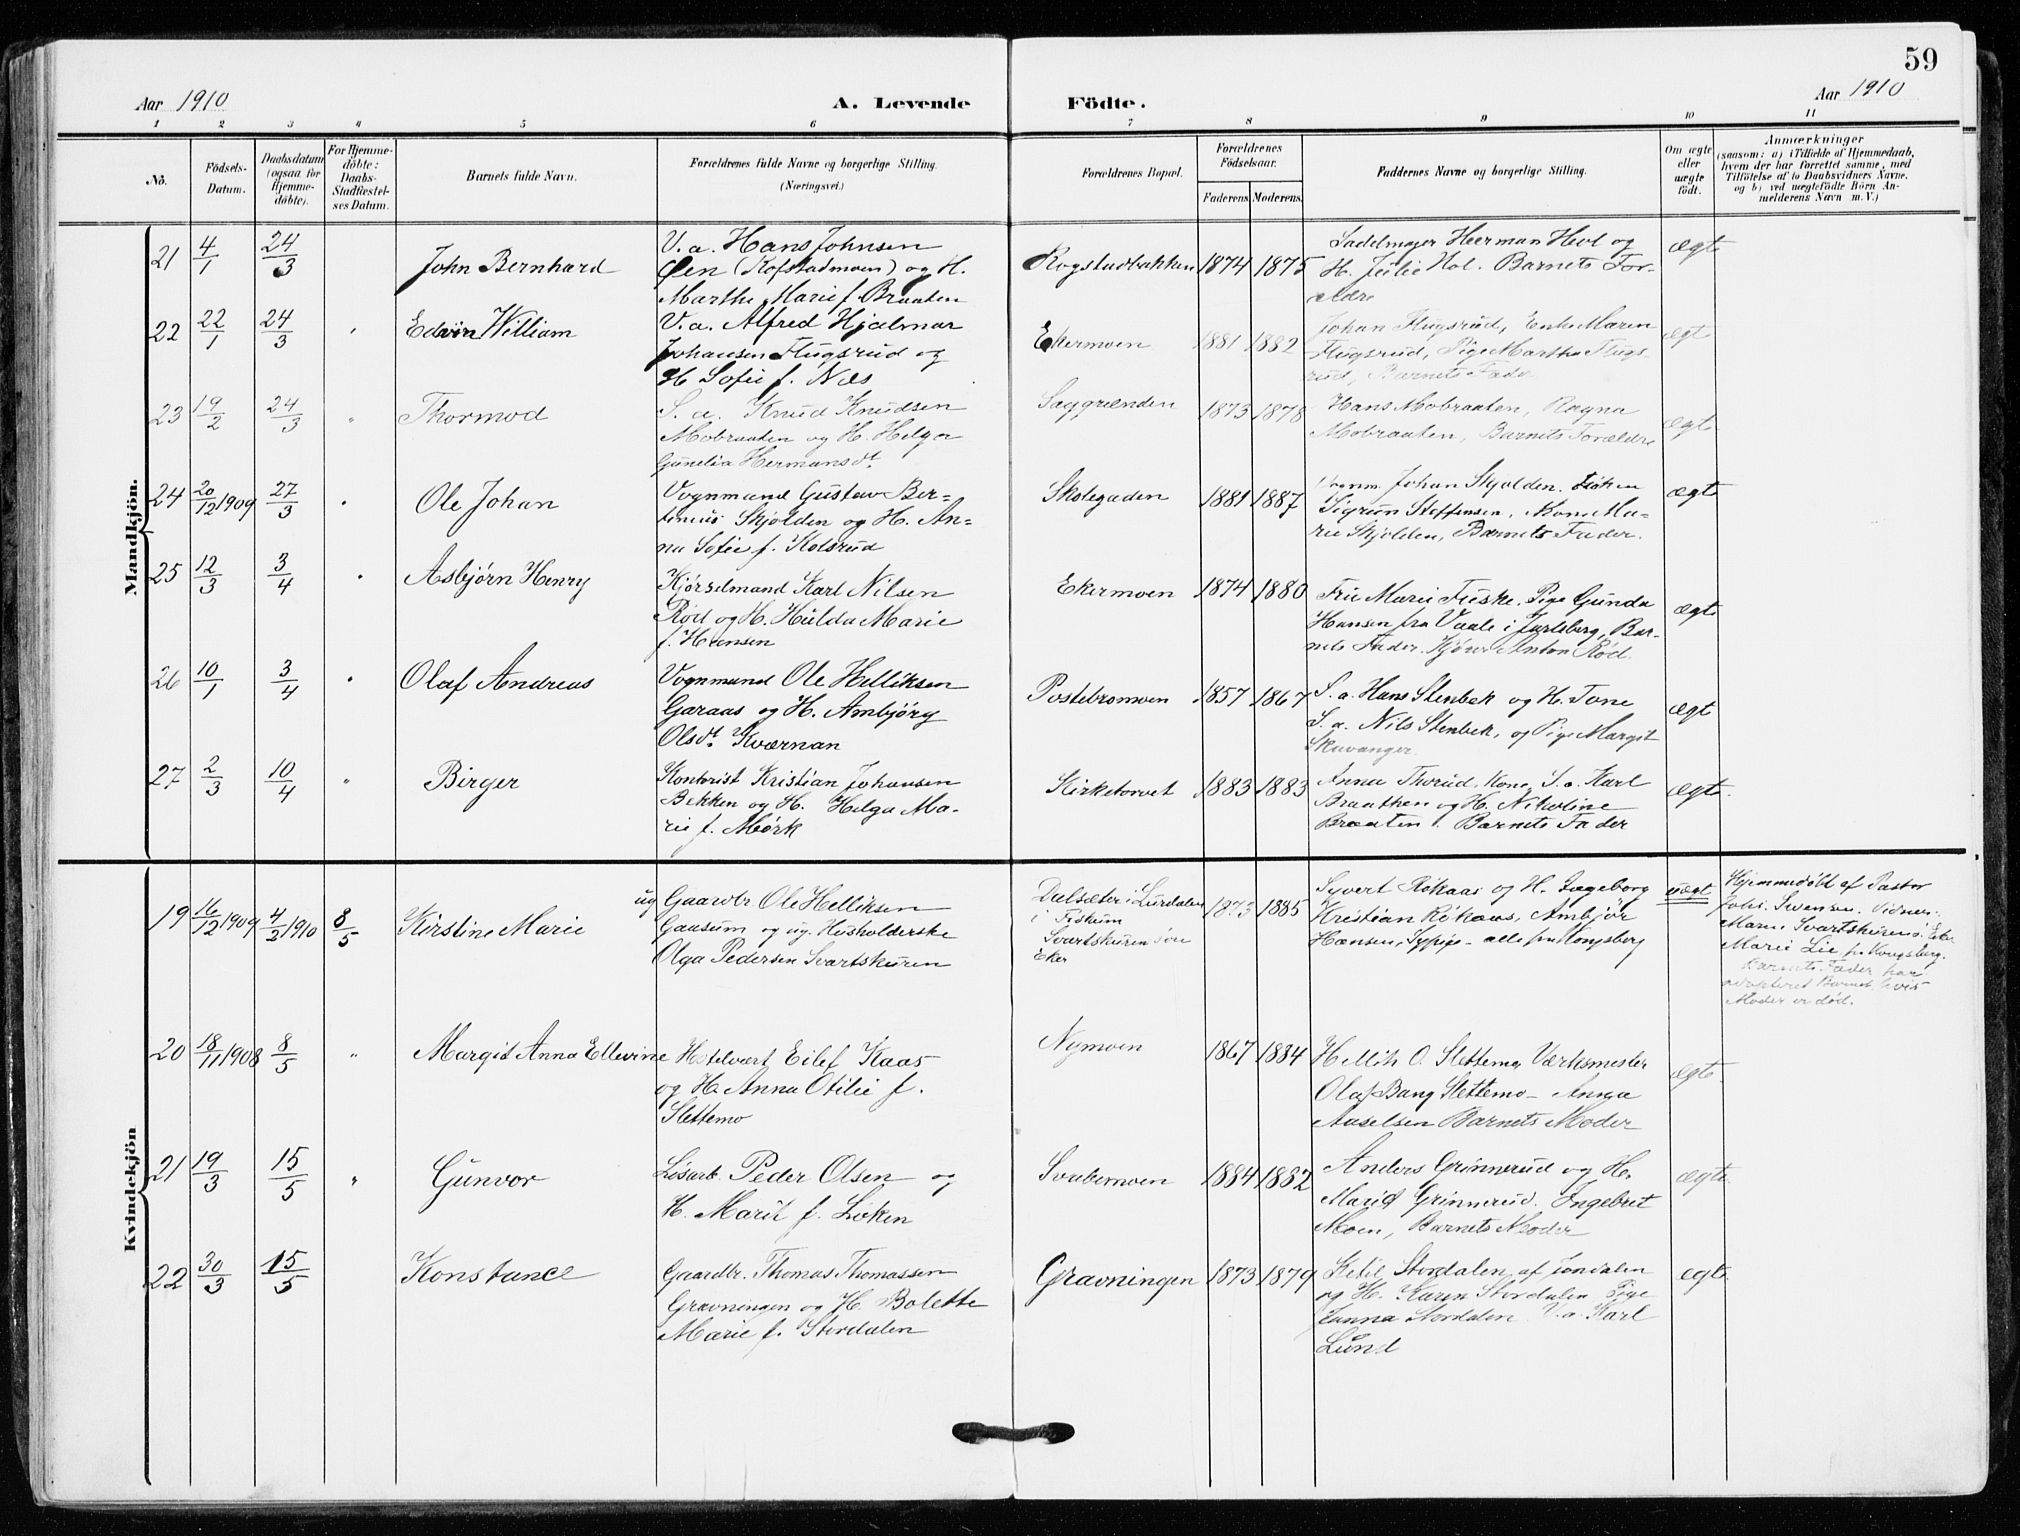 59
Aar 1910
A. Levende
Födte.
Aar 1910
1 2 3 4 5 6 7 8 9 10 11
No.
Födsels-
Datum.
Daabsdatum
(ogsaa for
Hjemme-
döbte).
For Hjemme-
döbte:
Daabs-
Stadfæstel-
ses Datum.
Barnets fulde Navn.
Forældrenes fulde Navne og borgerlige Stilling.
(Næringsvei.)
Forældrenes Bopæl.
Forældrenes
Födselsaar.
Faderens
Moderens.
Faddernes Navne og borgerlige Stilling.
Om ægte
eller
uægte
födt.
Anmærkninger
(saasom: a) i Tilfælde af Hjemmedaab,
hvem der har forrettet samme, med
Tilföielse af to Daabsvidners Navne,
og b) ved uægtefödte Börn An-
melderens Navn m. V.)
Mandkjön.
21 4/1 24/3
John Bernhard
V. a. Hans Johnsen
Øen (Kofstadmoen) og H.
Marthe Marie f. Braaten
Rogstadbakken 1874 1875
Sadelmager Herman Hol og
H. Julie Hol. Barnets For-
ældre
ægte
22 22/1 24/3
Edvin William
V. a. Alfred Hjalmar
Johansen Flugsrud og
H Sofie f. Næs
Ekermoen 1881 1882
Johan Flugsrud, Enke Maren
Flugsrud, Pige Martha Flugs
rud, Barnets Fader
ægt
23 19/2 24/3 "
Thormod
S. a. Knud Knudsen
Mobraaten og H. Helga
Gunelia Hermansdt.
Saggrenden 1873 1878
Hans Mobraaten, Ragna
Mobraaten, Barnets Forældre
ægte
24 20/12 1909 27/3
Ole Johan
Vognmand Gustav Ber-
tinius Skjolden og H. An-
na Sofie f. Kolsrud
Skolegaden 1881 1887
Vognm. Johan Skjolden. Frøken
Sigrun Steffensen, Kone Ma-
rie Skjolden, Barnets Fader.
ægte
25 12/3 3/4
Asbjørn Henry
Kjørselmand Karl Nilsen
Rød og H. Hulda Marie
f. Hansen
Ekermoen 1874 1880
Fru Marie Fuske. Pige Gunda
Hansen fra Vaale i Jarlsberg, Bar-
nets Fader. Kjører Anton Rød.
ægte
26 10/1 3/4
Olaf Andreas
Vognmand Ole Helliksen
Garaas og H. Ambjørg
Olsdt. Kværnan
Postebromoen 1857 1867
S. a. Hans Stenbek og H. Tone
S. a. Nils Stenbek, og Pige Margit
Skuvanger.
ægt
27 2/3 10/4 "
Birger
Kontorist Kristian Johansen
Bekken og H. Helga Ma-
rie f. Mørk
Kirketorvet 1883 1883
Anna Thorud, Kone, S. a. Karl
Braathen og H. Nikoline
Braaten. Barnets Fader
ægte.
Kvindekjön
19 16/12 1909 4/2 1910 8/5
Kirstine Marie
ug Gaardbr Ole Helliksen
Gaasum og ug. Husholderske
Olga Pedersen Svartskuren
Dalsæter i Lurdalen
i Fiskum
Svartskuren Øvre
Eker
1873 1885
Syvert Røkaas og H. Ingeborg
Kristian Røkaas, Ambjør
Hansen, Sypige - alle fra Kongsberg
uægt
Hjemmedøbt af Pastor
Johs. Svensen. Vidner:
Maren Svartskuren Ø. Eker
Marie Lie fr. Kongsberg.
Barnets Fader har
adopteret Barnet, hvis
Moder er død.
20 18/11 1908 8/5 "
Margit Anna Ellevine
Hotelvært Eilef Kaas
og H. Anna Otilie f.
Slettemo
Nymoen 1867 1884
Hellik O. Slettemo, Værksmester
Olaf Bang Slettemo - Anna
Axelsen Barnets Moder
ægte.
21 19/3 15/5 "
Gunvor
Løsarb. Peder Olsen og
H. Marit f. Løken
Svabemoen 1884 1882
Anders Grinnerud og H.
Marid Grinnerud. Ingebret
Moen, Barnets Moder
ægte.
22 30/3 15/5
Konstance
Gaardbr. Thomas Thomassen
Gravningen og H. Bolette
Marie f. Stordalen
Gravningen 1873 1879
Ketil Stordalen af Jondalen
og H. Karen Stordalen Pige
Hanna Stordalen V. a. Karl
Lund
ægte.